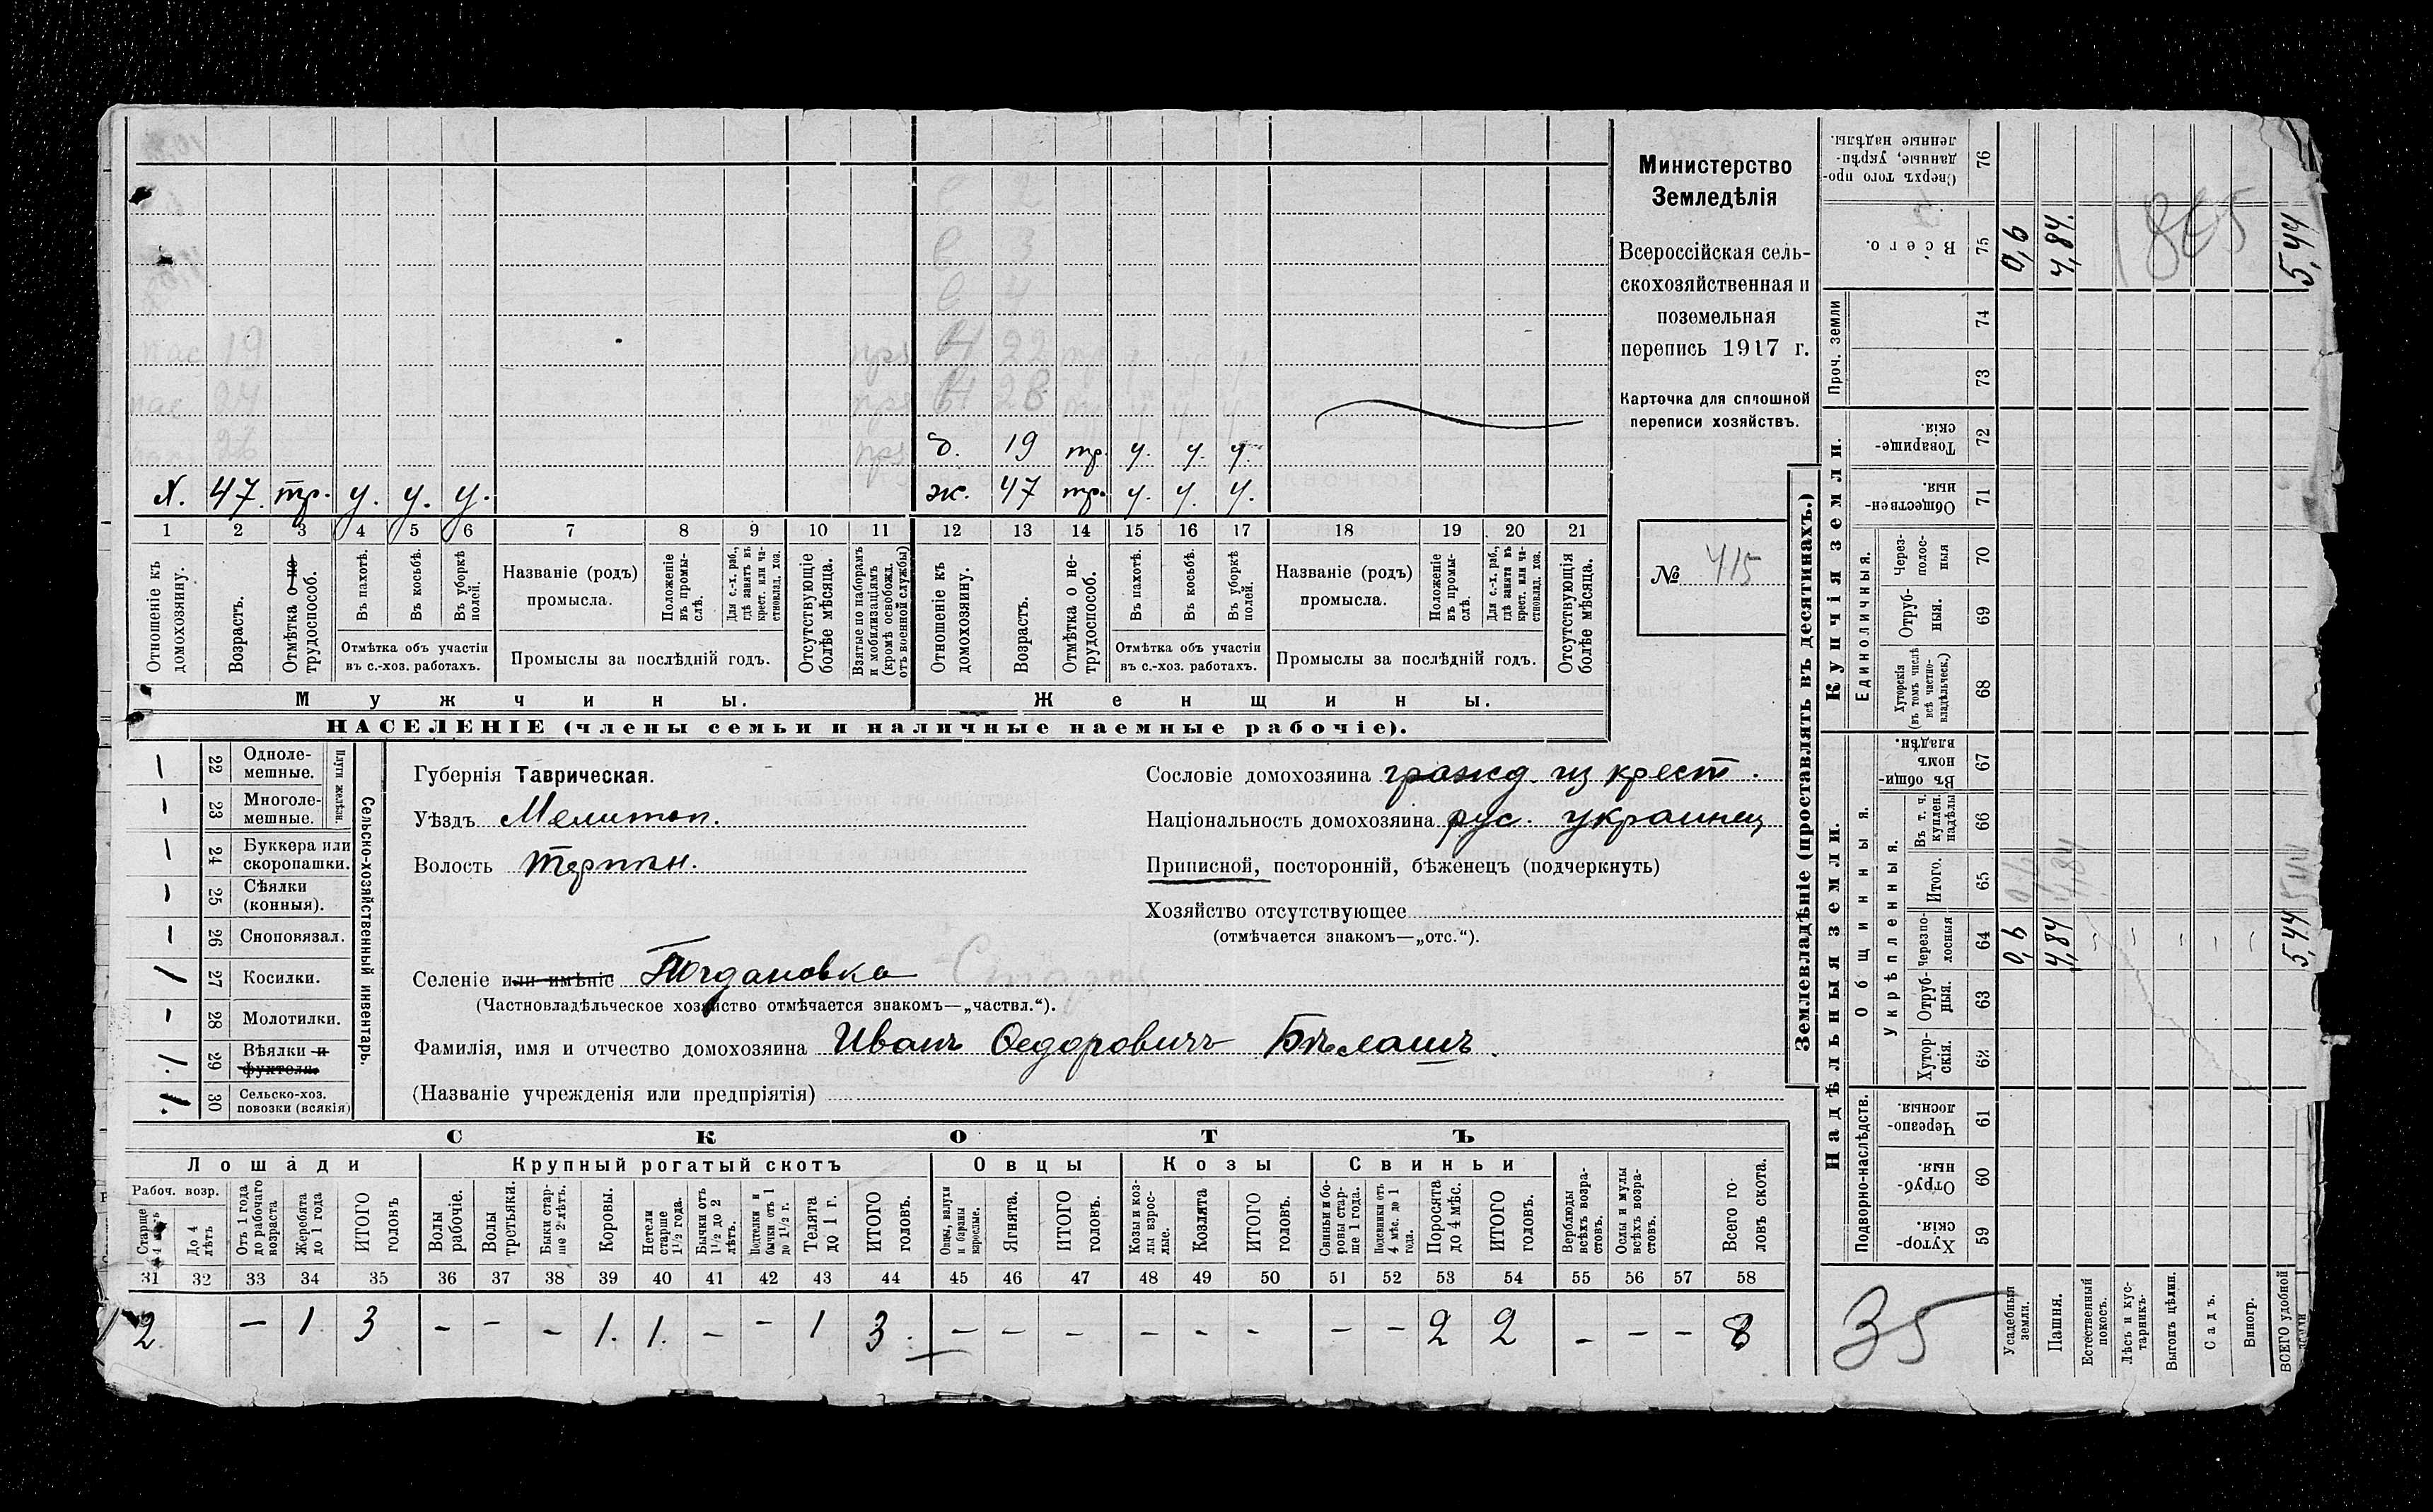 Министерство
Земледѣлія
Всероссійская сель-
скохозяйственная и
поземельная
перепись 1917 г.
Карточка для сплошной
переписи хозяйствъ.
№ 415
д. 19 тр. у. у. у.
Х. 47. тр. у. у. у.
ж. 47 тр. у. у. у.
1 2 3 4 5 6 7 8 9 10 11 12 13 14 15 16 17 18 19 20 21
Отношеніе къ домохозяину.
Возрастъ.
Отмѣтка о не-трудоспособ.
Въ пахотѣ.
Въ косьбѣ.
Въ уборкѣ полей.
Отмѣтка объ участіи
въ с.-хоз. работахъ.
Названіе (родъ)
промысла.
Положеніе въ промы-слѣ.
Для с.-х. раб., гдѣ занятъ въ крест. или ча-стновлад. хоз.
Промыслы за послѣдній годъ.
Отсутствующіе болѣе мѣсяца.
Взятые по наборамъ и мобилизаціямъ (кромѣ освобожд. отъ военной службы)
Отношеніе къ домохозяину.
Возрастъ.
Отмѣтка о не-трудоспособ.
Въ пахотѣ.
Въ косьбѣ.
Въ уборкѣ полей.
Отмѣтка объ участіи
въ с.-хоз. работахъ.
Названіе (родъ)
промысла.
Положеніе въ промы-слѣ.
Для с.-х. раб., гдѣ занята въ крест. или ча-стновлад. хоз.
Промыслы за послѣдній годъ.
Отсутствующія болѣе мѣсяца.
Мужчины. Женщины.
НАСЕЛЕНІЕ (члены семьи и наличные наемные рабочіе).
Сельско-хозяйственный инвентарь.
Плуги желѣзн.
– 22 Одноле-мешные.
– 23 Многоле-мешные.
– 24 Буккера или скоропашки.
– 25 Сѣялки (конныя).
– 26 Сноповязал.
1 27 Косилки.
– 28 Молотилки.
1 29 Вѣялки и фухтеля.
1 30 Сельско-хоз. повозки (всякія)
Губернія Таврическая.
Уѣздъ Мелитоп.
Волость Терпѣн.
Сословіе домохозяина гражд. из крест.
Національность домохозяина рус. украинец
Приписной, посторонній, бѣженецъ (подчеркнуть)
Хозяйство отсутствующее
(отмѣчается знакомъ—„отс.“).
Селеніе или имѣніе Богдановка Стар
(Частновладѣльческое хозяйство отмѣчается знакомъ—„частвл.“).
Фамилія, имя и отчество домохозяина Иванъ Ѳедоровичъ Бѣлашъ.
(Названіе учрежденія или предпріятія)
СКОТЪ
Лошади Крупный рогатый скотъ Овцы Козы Свиньи
Рабоч. возр.
Старше 4 лѣтъ
До 4 лѣтъ
Отъ 1 года до рабочаго возраста
Жеребята до 1 года
ИТОГО головъ
Волы рабочіе.
Волы третьяки.
Быки стар-ше 2 лѣтъ.
Коровы.
Нетели старше 1½ года.
Бычки отъ 1½ до 2 лѣтъ.
Подтелки и бычки отъ 1 до 1½ г.
Телята до 1 г.
ИТОГО головъ.
Овцы, валухи и бараны взрослые.
Ягнята.
ИТОГО головъ.
Козы и коз-лы взрос-лые.
Козлята
ИТОГО головъ.
Свиньи и бо-ровы стар-ше 1 года.
Подсвинки отъ 4 мѣс. до 1 года.
Поросята до 4 мѣс.
ИТОГО головъ.
Верблюды всѣхъ возра-стовъ.
Ослы и мулы всѣхъ возра-стовъ.
Всего го-ловъ скота.
31 32 33 34 35 36 37 38 39 40 41 42 43 44 45 46 47 48 49 50 51 52 53 54 55 56 57 58
2 – 1 3 – – – 1. 1. – – 1 3. – – – – – – – – 2 2 – – – 8
Землевладѣніе (проставлять въ десятинахъ.)
Купчія земли.
Надѣльныя земли.
Сверхъ того про-данные, укрѣп-ленные надѣлы. 76
Всего. 75 0,6 4,84. 5,44
865
Проч. земли 74 73
Товарище-скія. 72
Обществен-ныя. 71
Единоличныя.
Через-полос-ныя 70
Отруб-ныя. 69
Хуторскія (въ томъ числѣ всѣ частно-владѣльческ.) 68
Общинныя.
Въ общин-номъ владѣн. 67
Укрѣпленныя.
Въ т. ч. куплен. надѣлы 66
Итого. 65 0,6 4,84 5,44
Черезпо-лосныя 64 0,6 4,84 – – – – – 5,44
Отруб-ныя. 63
Хутор-скія. 62
Подворно-наслѣдств.
Черезпо-лосныя. 61
Отруб-ныя. 60
Хутор-скія. 59
35
Усадебныя земли.
Пашня.
Естественный покосъ.
Лѣсъ и кус-тарникъ.
Выгонъ цѣлин.
Садъ.
Виногр.
ВСЕГО удобной земли